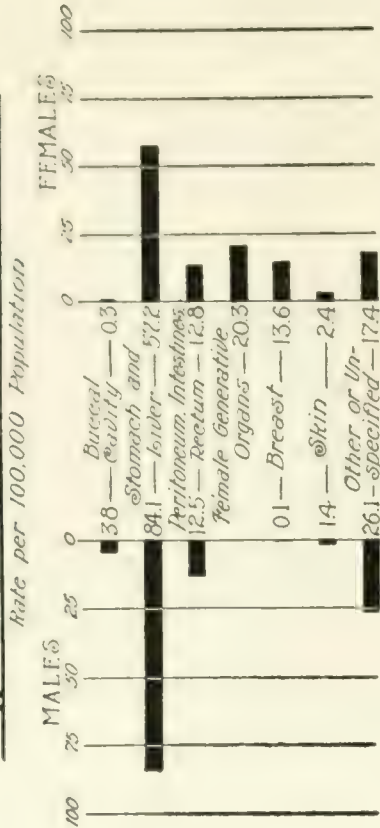 Rate per 100,000 Population
MALES FEMALES
100 75 50 25 0 0 25 50 75 100
Buccal
3.8 — Cavity — 0.3
Stomach and
84.1 — Liver — 57.2
Peritoneum, Intestines,
12.5 — Rectum — 12.8
Female Generative
Organs — 20.3
0.1 — Breast — 13.6
1.4 — Skin — 2.4
Other or Un-
26.1 — specified — 17.4